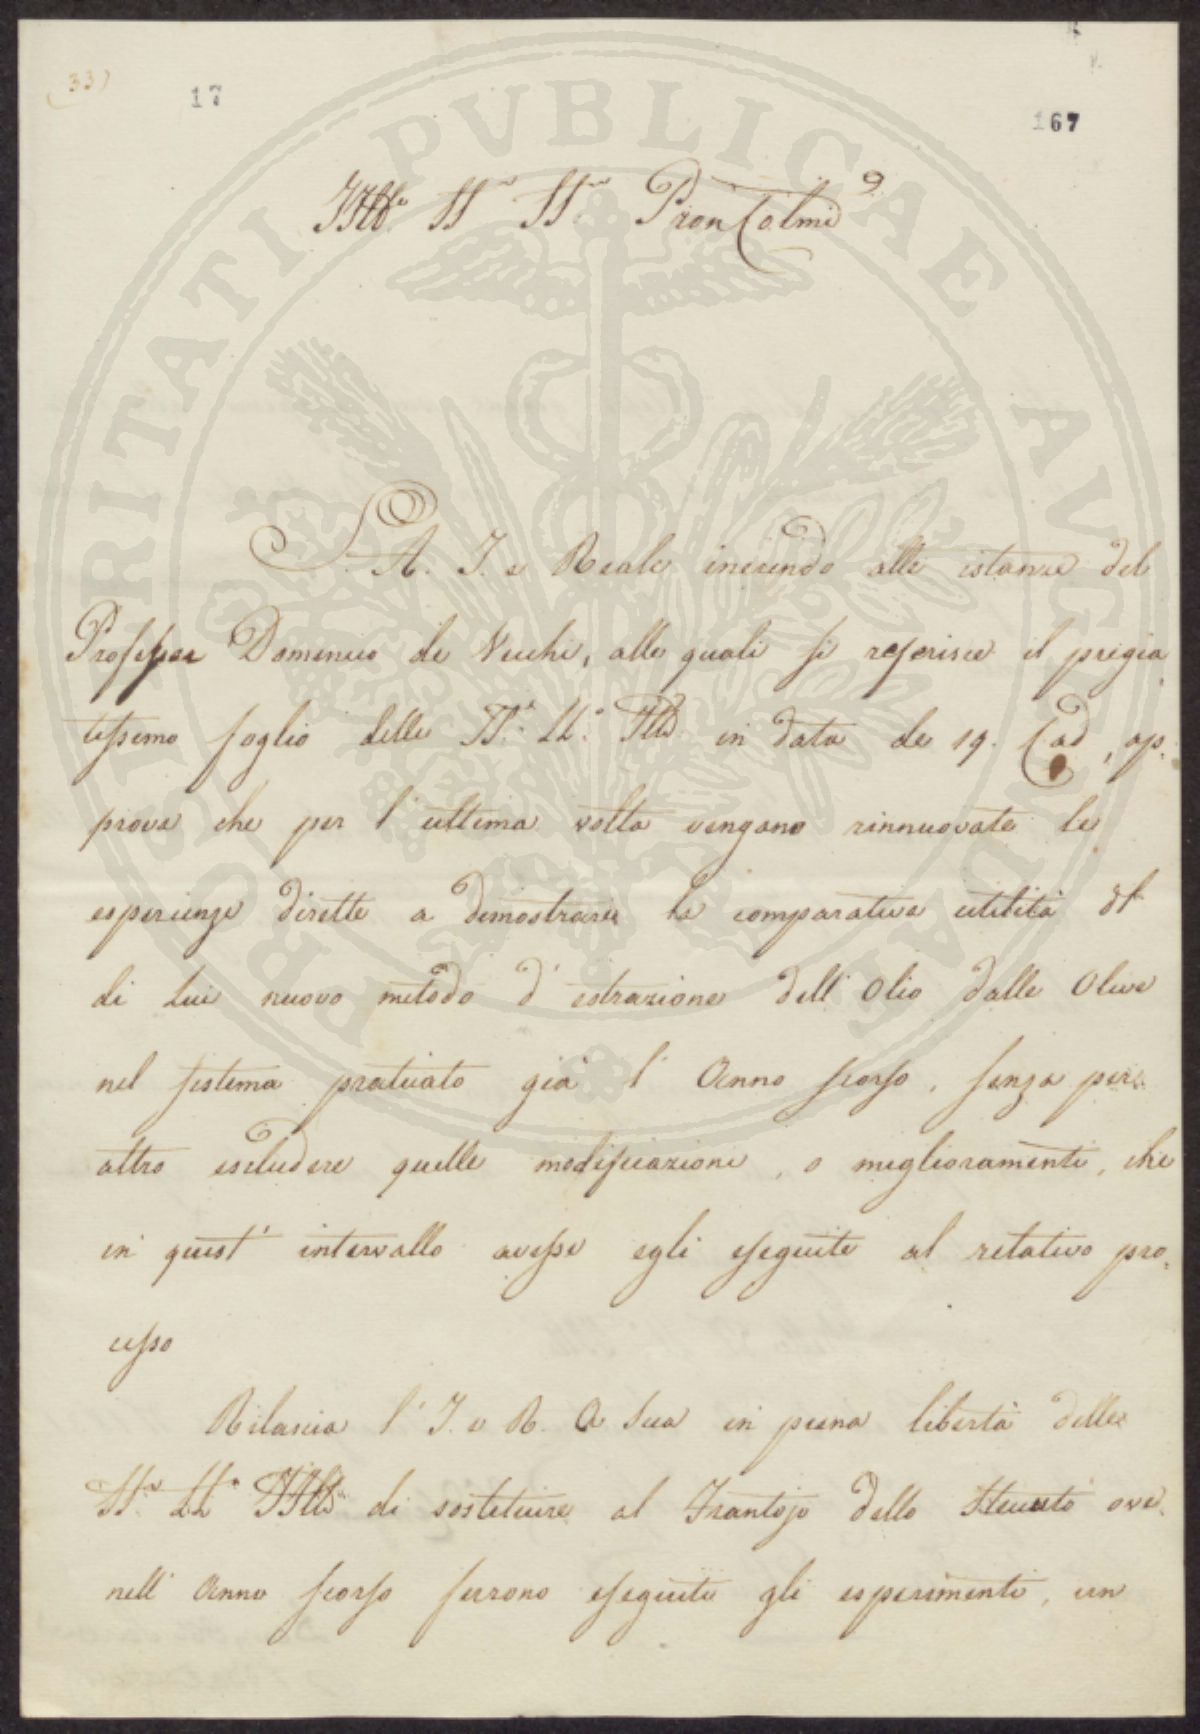 33)
17
167
Illi SS.ri SS.ri Pron Colmi
S. A. I. e Reale inerendo alle istanze del
Professor Domenico de Vecchi, alle quali si referisce il pregia
tissimo foglio delle SS.e LL.e Ill. in data de 19. Cad, ap=
prova che per l'ultima volta vengano rinnuovate le
esperienze dirette a dimostrare la comparativa utilità del
di Lui nuovo metodo d'estrazione dell'Olio dalle Olive
nel sistema praticato già l'Anno scorso, senza per
altro escludere quelle modificazioni, o miglioramenti, che
in quest'intervallo avesse egli eseguite al relativo pro=
cesso
Rilascia l'I. e R. A Sua in piena libertà delle
SS.e LL.e Ill. di sostituire al Frantojo dello ove
nell'Anno scorso furono eseguiti gli esperimenti, un
PROSPERITATI PVBLICAE AVGENDAE